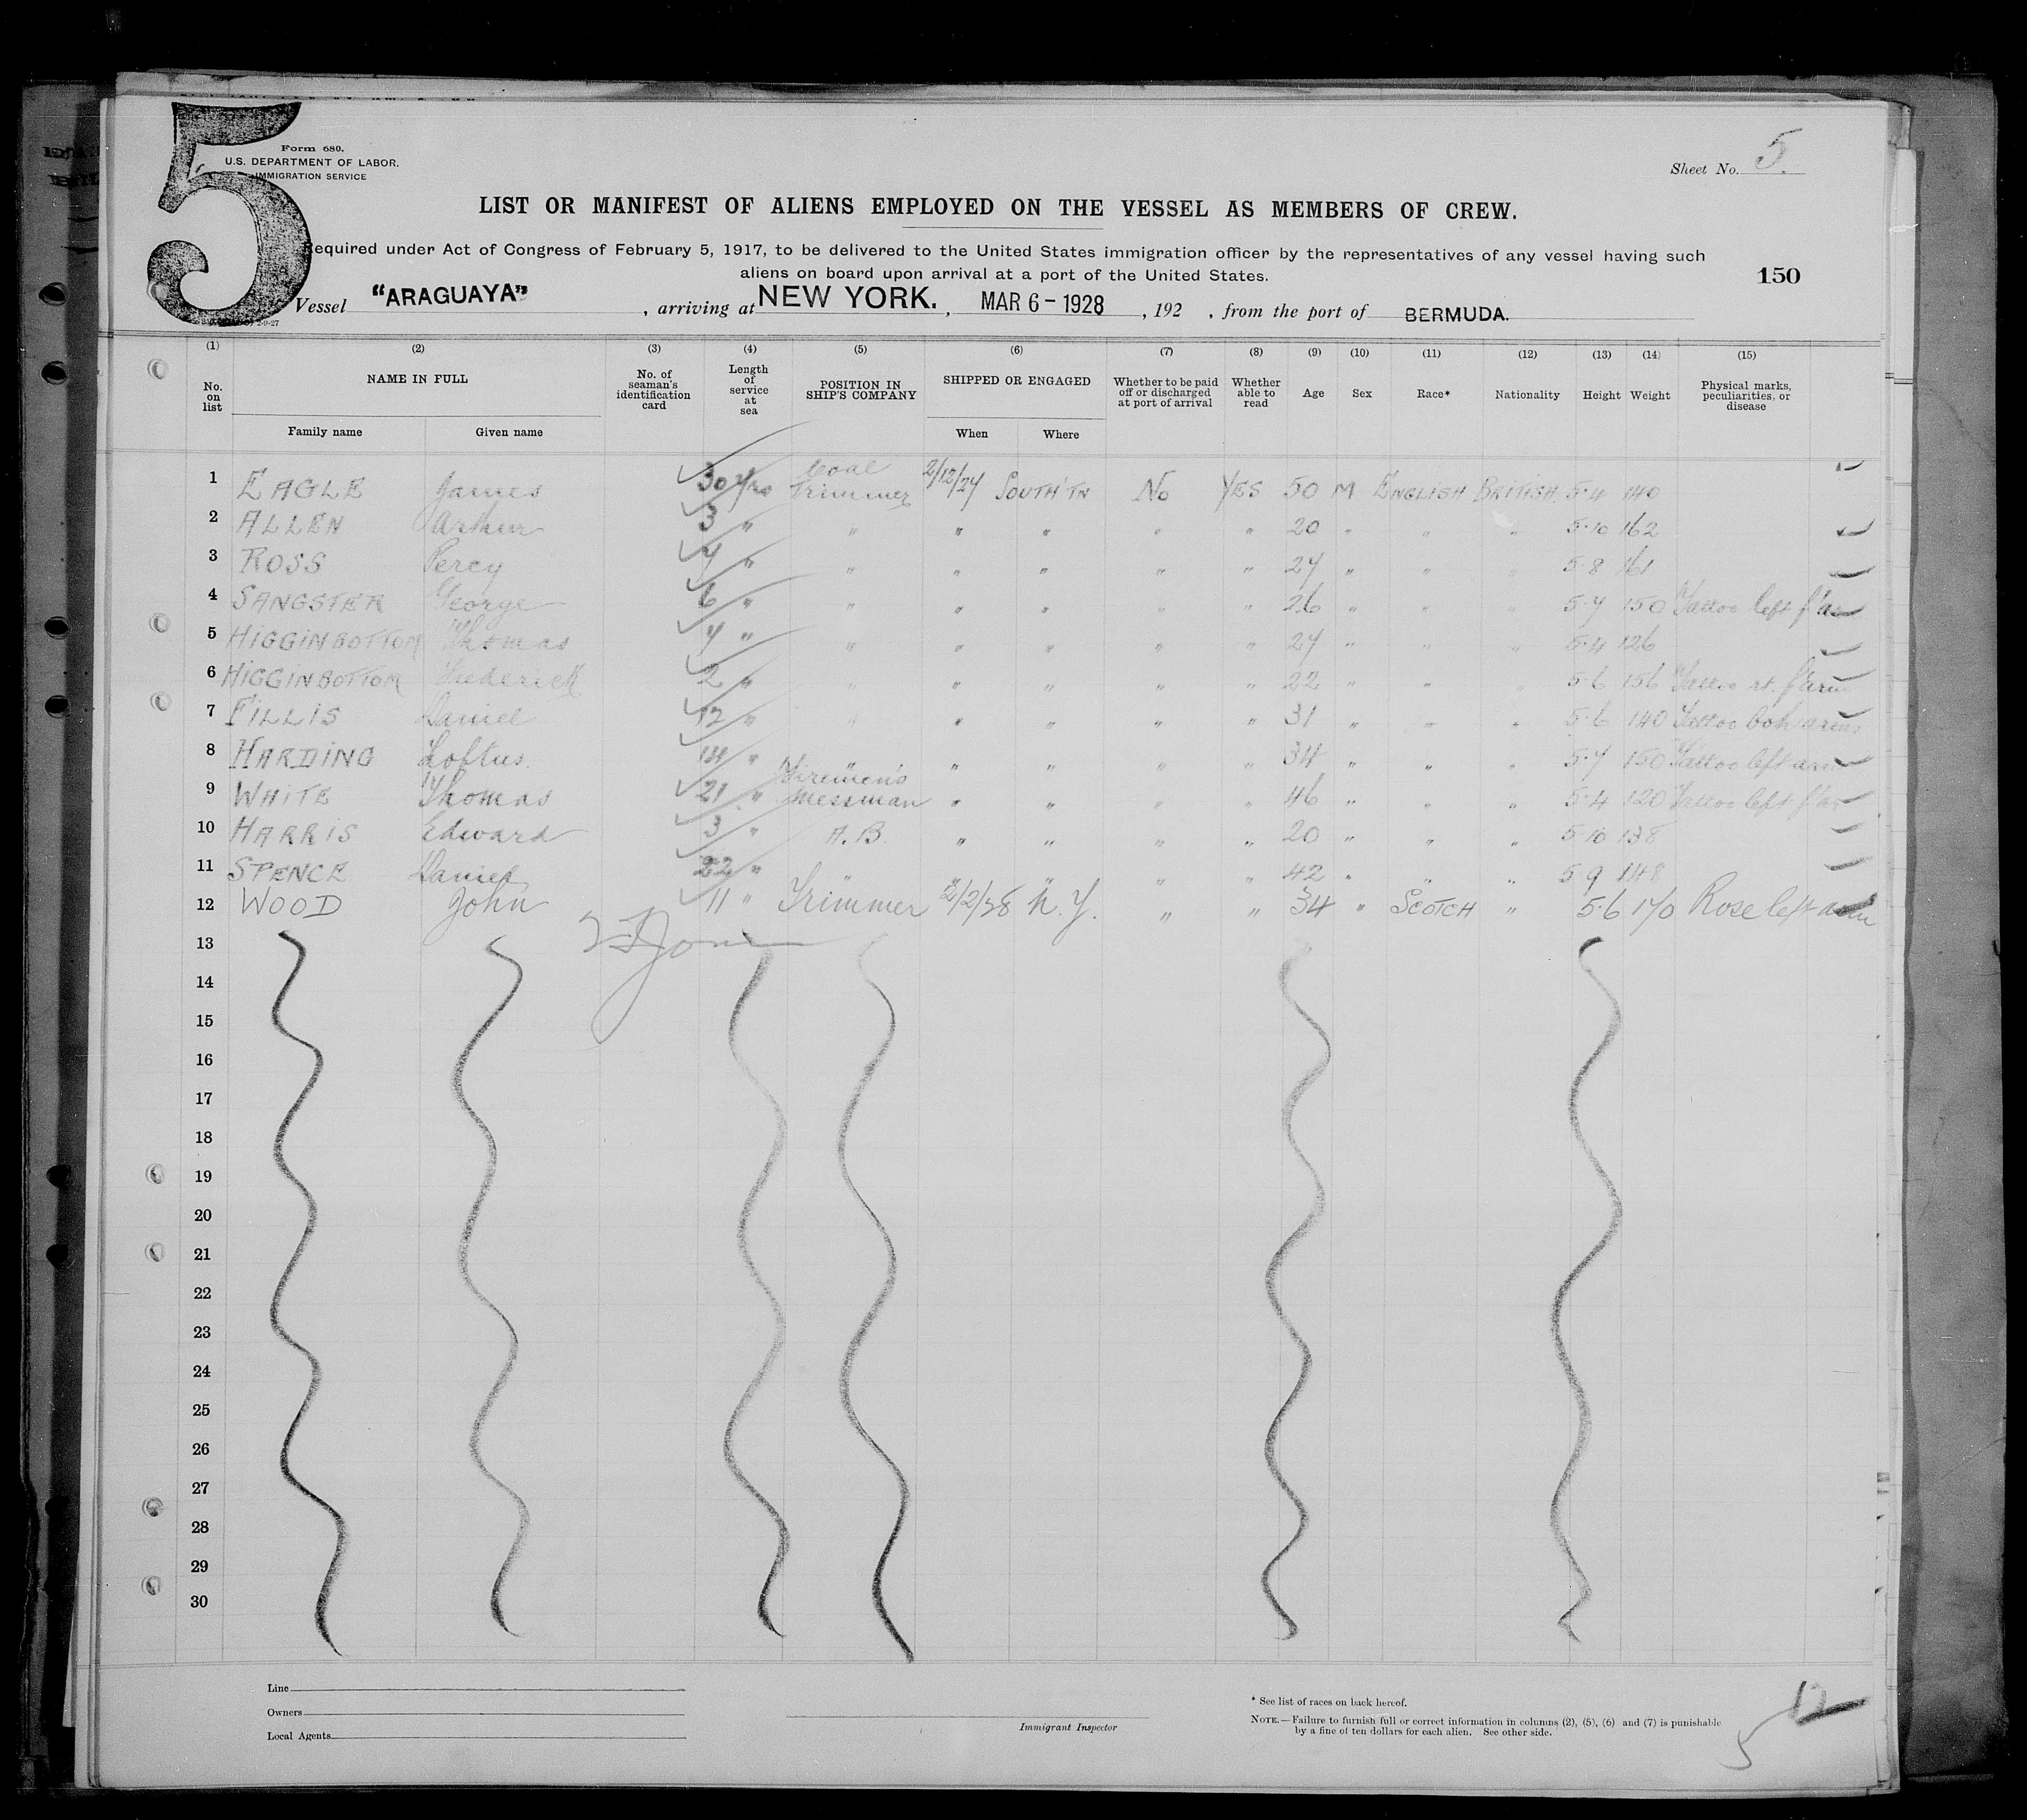 5
Form 680.
U.S. DEPARTMENT OF LABOR.
IMMIGRATION SERVICE
Sheet No. 5.
LIST OR MANIFEST OF ALIENS EMPLOYED ON THE VESSEL AS MEMBERS OF CREW.
Required under Act of Congress of February 5, 1917, to be delivered to the United States immigration officer by the representatives of any vessel having such
aliens on board upon arrival at a port of the United States.
150
Vessel "ARAGUAYA" , arriving at NEW YORK. , MAR 6 - 1928 , 192 , from the port of BERMUDA.
(1) (2) (3) (4) (5) (6) (7) (8) (9) (10) (11) (12) (13) (14) (15)
No. on list NAME IN FULL No. of seaman's identification card Length of service at sea POSITION IN SHIP'S COMPANY SHIPPED OR ENGAGED Whether to be paid off or discharged at port of arrival Whether able to read Age Sex Race* Nationality Height Weight Physical marks, peculiarities, or disease
Family name Given name When Where
1 EAGLE James 30 yrs Coal Trimmer 2/12/27 SOUTH'TN No YES 50 M ENGLISH BRITISH 5·4 140
2 ALLEN Arthur 3 " " " " " " 20 " " " 5·10 162
3 ROSS Percy " " " " " " 24 " " " 5·8 161
4 SANGSTER George 6 " " " " " " 26 " " " 5·7 150 Tattoo left f'arm
5 HIGGINBOTTOM Thomas " " " " " " 24 " " " 5·4 126
6 HIGGINBOTTOM Frederick 2 " " " " " " 22 " " " 5·6 156 Tattoo rt. f'arm
7 FILLIS Daniel 12 " " " " " " 31 " " " 5·6 140 Tattoo both arms
8 HARDING Loftus 14 " " " " " " 34 " " " 5·7 150 Tattoo left arm
9 WHITE Thomas 21 " Firemen's Messman " " " " 46 " " " 5·4 120 Tattoo left f'arm
10 HARRIS Edward 3 " A.B. " " " " 20 " " " 5·10 138
11 SPENCE Daniel 22 " " " " " " 42 " " " 5·9 148
12 WOOD John 11 " Trimmer 2/2/28 N.Y. " " 34 " SCOTCH " 5·6 170 Rose left arm
13
14
15
16
17
18
19
20
21
22
23
24
25
26
27
28
29
30
Line
Owners
Local Agents
Immigrant Inspector
* See list of races on back hereof.
NOTE.—Failure to furnish full or correct information in columns (2), (5), (6) and (7) is punishable
by a fine of ten dollars for each alien. See other side.
12
5